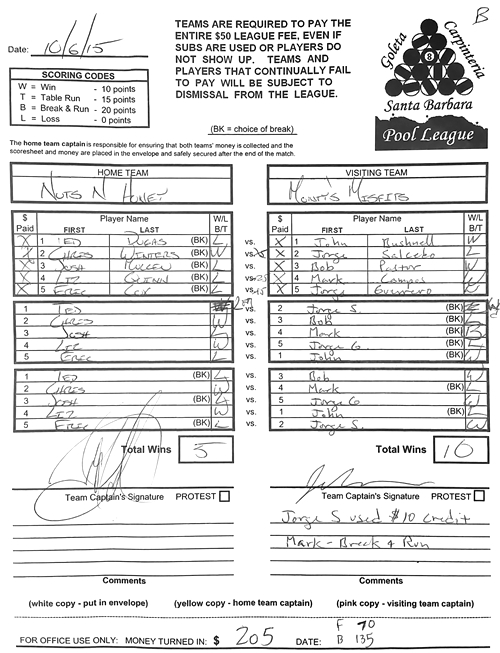 B
Date: 10/6/15
TEAMS ARE REQUIRED TO PAY THE
ENTIRE $50 LEAGUE FEE, EVEN IF
SUBS ARE USED OR PLAYERS DO
NOT SHOW UP. TEAMS AND
PLAYERS THAT CONTINUALLY FAIL
TO PAY WILL BE SUBJECT TO
DISMISSAL FROM THE LEAGUE.
SCORING CODES
W = Win - 10 points
T = Table Run - 15 points
B = Break & Run - 20 points
L = Loss - 0 points
Goleta
Carpinteria
8
Santa Barbara
Pool League
(BK = choice of break)
The home team captain is responsible for ensuring that both teams' money is collected and the
scoresheet and money are placed in the envelope and safely secured after the end of the match.
HOME TEAM VISITING TEAM
NUTS N HONEY Monty's Misfits
$ Paid Player Name FIRST LAST W/L B/T $ Paid Player Name FIRST LAST W/L B/T
X 1 TED DUGAS (BK) L vs. X 1 John Bushnell W
X 2 CHRIS WINTERS (BK) W vs. X 2 Jorge Salcedo L
X 3 JOSH MULLEN (BK) L vs. X 3 Bob Pastor W
X 4 LIZ (BK) L vs. X 4 Mark Campos W
X 5 ERIC COX (BK) L vs. X 5 Jorge Guerrero W
1 TED vs. 2 Jorge S. (BK)
2 CHRIS W vs. 3 Bob (BK) L
3 JOSH L vs. 4 Mark (BK) B
4 LIZ W vs. 5 Jorge G. (BK) L
5 ERIC L vs. 1 John (BK) W
1 TED (BK) L vs. 3 Bob W
2 CHRIS W vs. 4 Mark (BK) L
3 JOSH (BK) L vs. 5 Jorge G W
4 LIZ W vs. 1 John (BK) L
5 ERIC (BK) L vs. 2 Jorge S. W
Total Wins 5 Total Wins 10
Team Captain's Signature PROTEST Team Captain's Signature PROTEST
Jorge S used $10 credit
Mark - Break & Run
Comments Comments
(white copy - put in envelope) (yellow copy - home team captain) (pink copy - visiting team captain)
F 70
FOR OFFICE USE ONLY: MONEY TURNED IN: $ 205 DATE: B 135